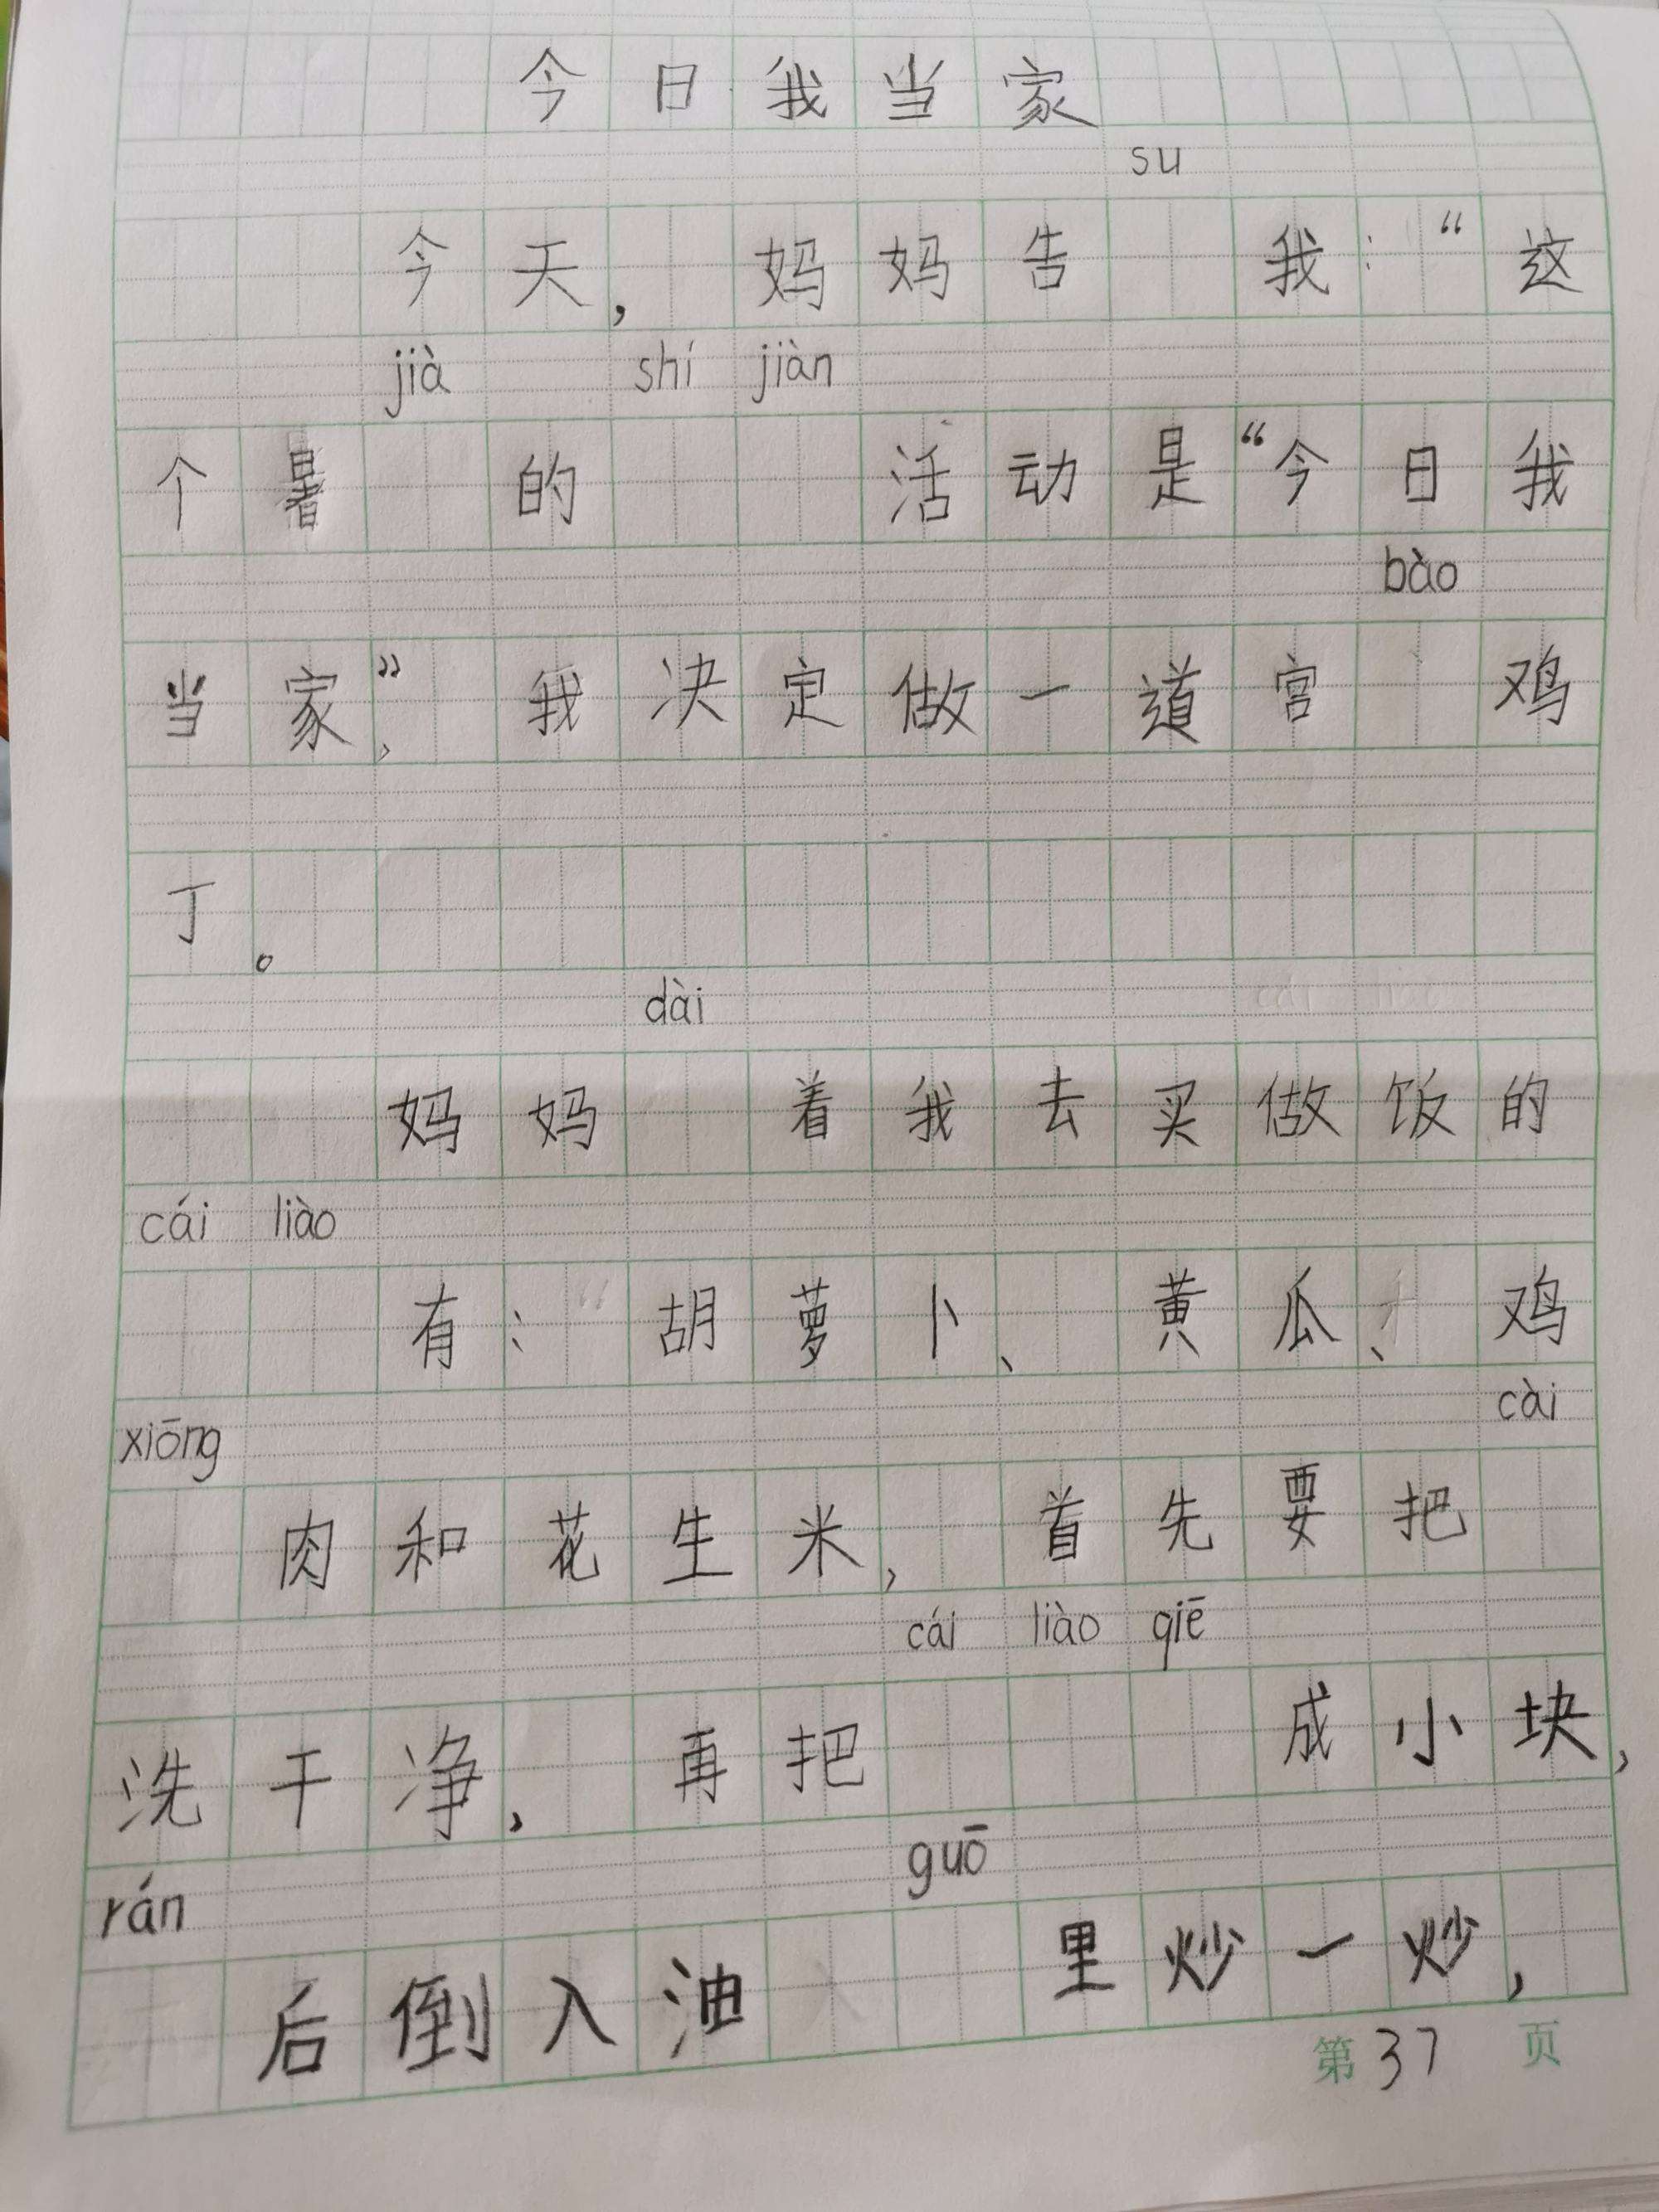 今日我当家
su
今天，妈妈告 我：“这
jià shí jiàn
个暑 的 活动是“今日我
bào
当家”，我决定做一道宫 鸡
丁。
dài
妈妈 着我去买做饭的
cái liào
有：胡萝卜、黄瓜、鸡
xiōng cài
肉和花生米，首先要把
cái liào qiē
洗干净，再把 成小块，
rán guō
后倒入油 里炒一炒，
第37页